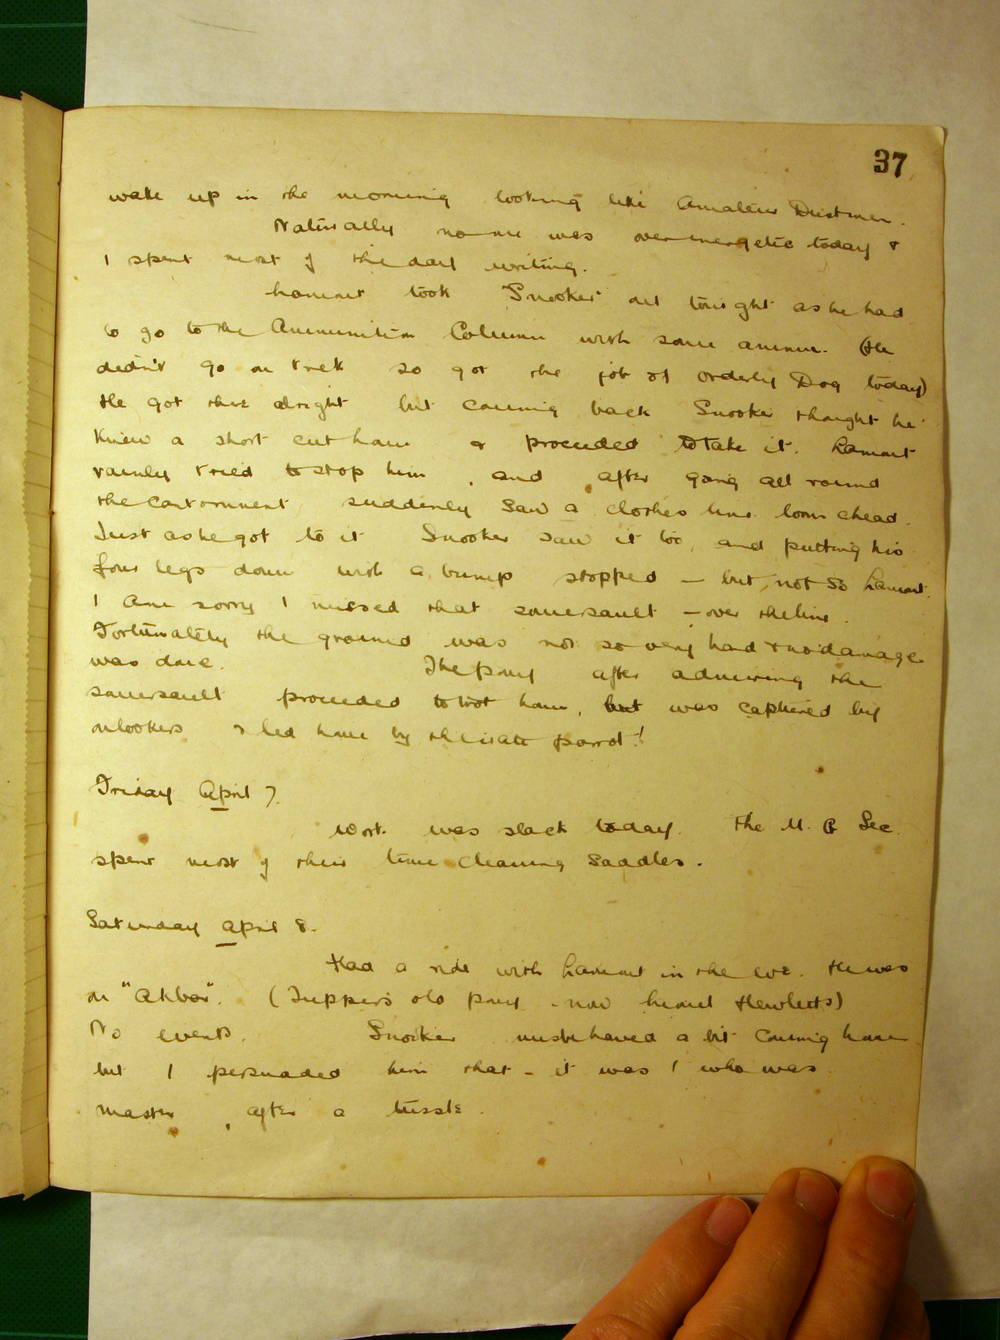 37
wake up in the morning looking like Amateur Dustmen.
Naturally no one was overenergetic today &
I spent most of the day writing.
Lamont took Snooker out tonight as he had
to go to the Ammunition Column with some ammn. (He
didn't go on trek so got the job of Orderly Dog today)
He got there alright but coming back Snooker thought he
knew a short cut home & proceeded to take it. Lamont
vainly tried to stop him, and after going all round
the cantonment, suddenly saw a clothes line loom ahead.
Just as he got to it Snooker saw it too, and putting his
four legs down with a bump stopped – but not so Lamont.
I am sorry I missed that somersault – over the line.
Fortunately the ground was not so very hard & no damage
was done. The pony after admiring the
somersault proceeded to trot home, but was captured by
onlookers & led home by the
Friday April 7.
Work was slack today. The M. G Sec
spent most of their time cleaning saddles.
Saturday April 8.
Had a ride with Lamont in the eve. He was
on "Akbar". (Tupper's old pony - now Lieut Hewletts)
No events. Snooker misbehaved a bit coming home
but I persuaded him that – it was I who was
master, after a tussle.